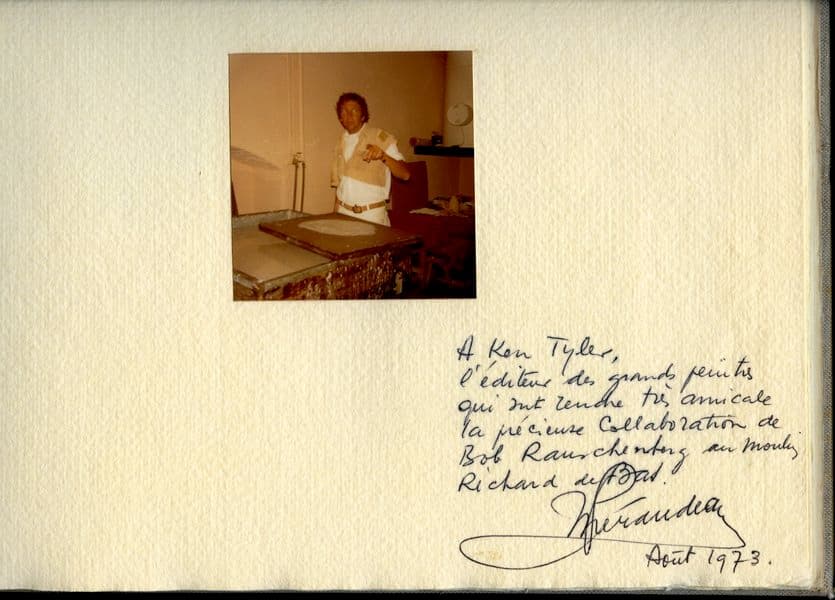 A Ken Tyler,
l'éditeur des grands peintres
qui ont rendue très amicale
la précieuse Collaboration de
Bob Rauschenberg au Moulin
Richard de Bas.
Août 1973.